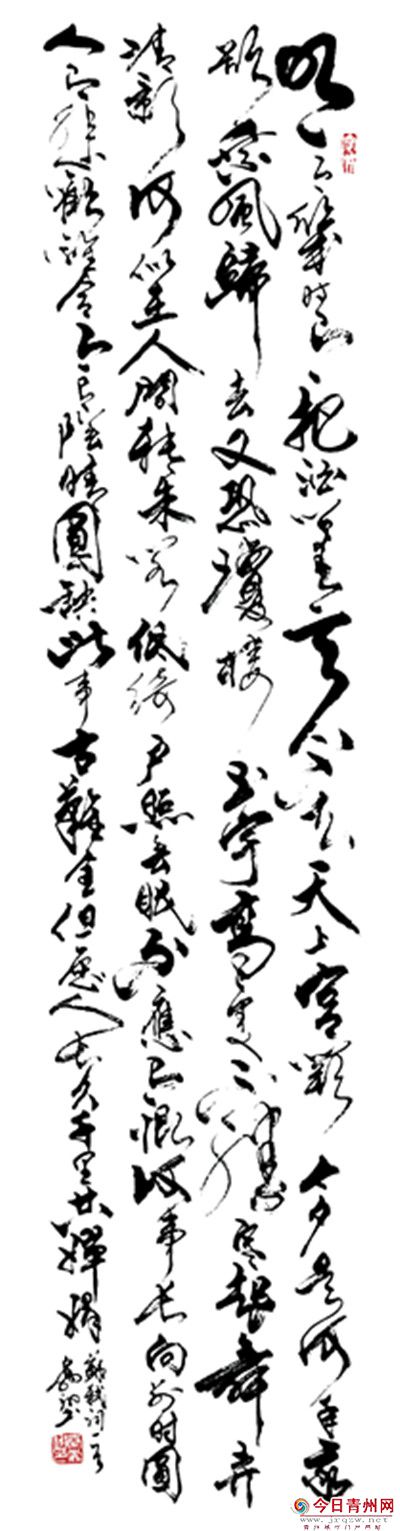 明月幾時有把酒問青天不知天上宮闕今夕是何年我
欲乘風歸去又恐瓊樓玉宇高處不勝寒起舞弄
清影何似在人間轉朱閣低綺戶照無眠不應有恨何事長向別時圓
人有悲歡離合月有陰晴圓缺此事古難全但願人長久千里共嬋娟
蘇軾詞一首
今日青州网
www.jrqzw.net